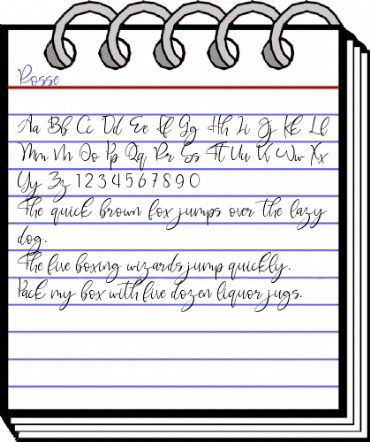 Rosse
Aa Bb Cc Dd Ee Ff Gg Hh Ii Jj Kk Ll
Mm Nn Oo Pp Qq Rr Ss Tt Uu Vv Ww Xx
Yy Zz 1 2 3 4 5 6 7 8 9 0
The quick brown fox jumps over the lazy
dog.
The five boxing wizards jump quickly.
Pack my box with five dozen liquor jugs.